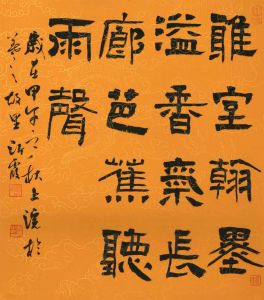 雅室翰墨
溢香氣長
廊芭蕉聽
雨聲
歲在甲午之秋上浣於
之故里霞